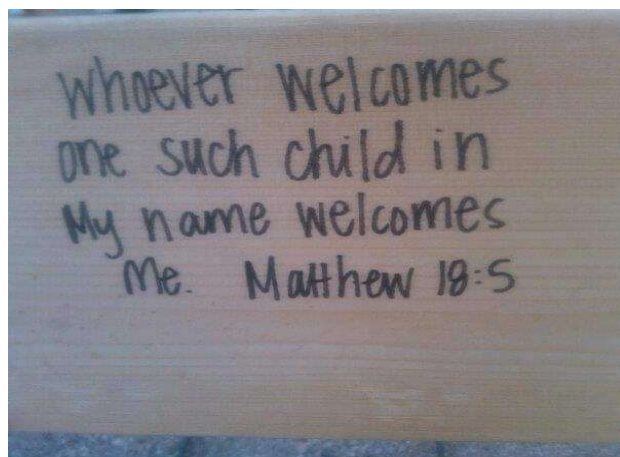 Whoever welcomes
one such child in
My name welcomes
Me. Matthew 18:5